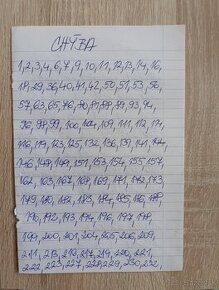 CHÝBA
1,2,3,4,6,7,9,10,11,12,13,14,16,
18,29,36,40,41,42,50,51,53,56,
57,63,65,76,80,81,88,89,93,94,
96,98,99,100,104,109,111,112,114,
116,119,123,125,132,136,139,141,144,
146,148,149,151,153,154,155,157,
162,163,167,168,169,171,172,173,
179,180,182,183,184,185,186,188,
190,192,193,194,196,197,198,
199,200,201,204,205,206,209,
211,213,216,217,219,220,221,
222,223,227,228,229,230,232,